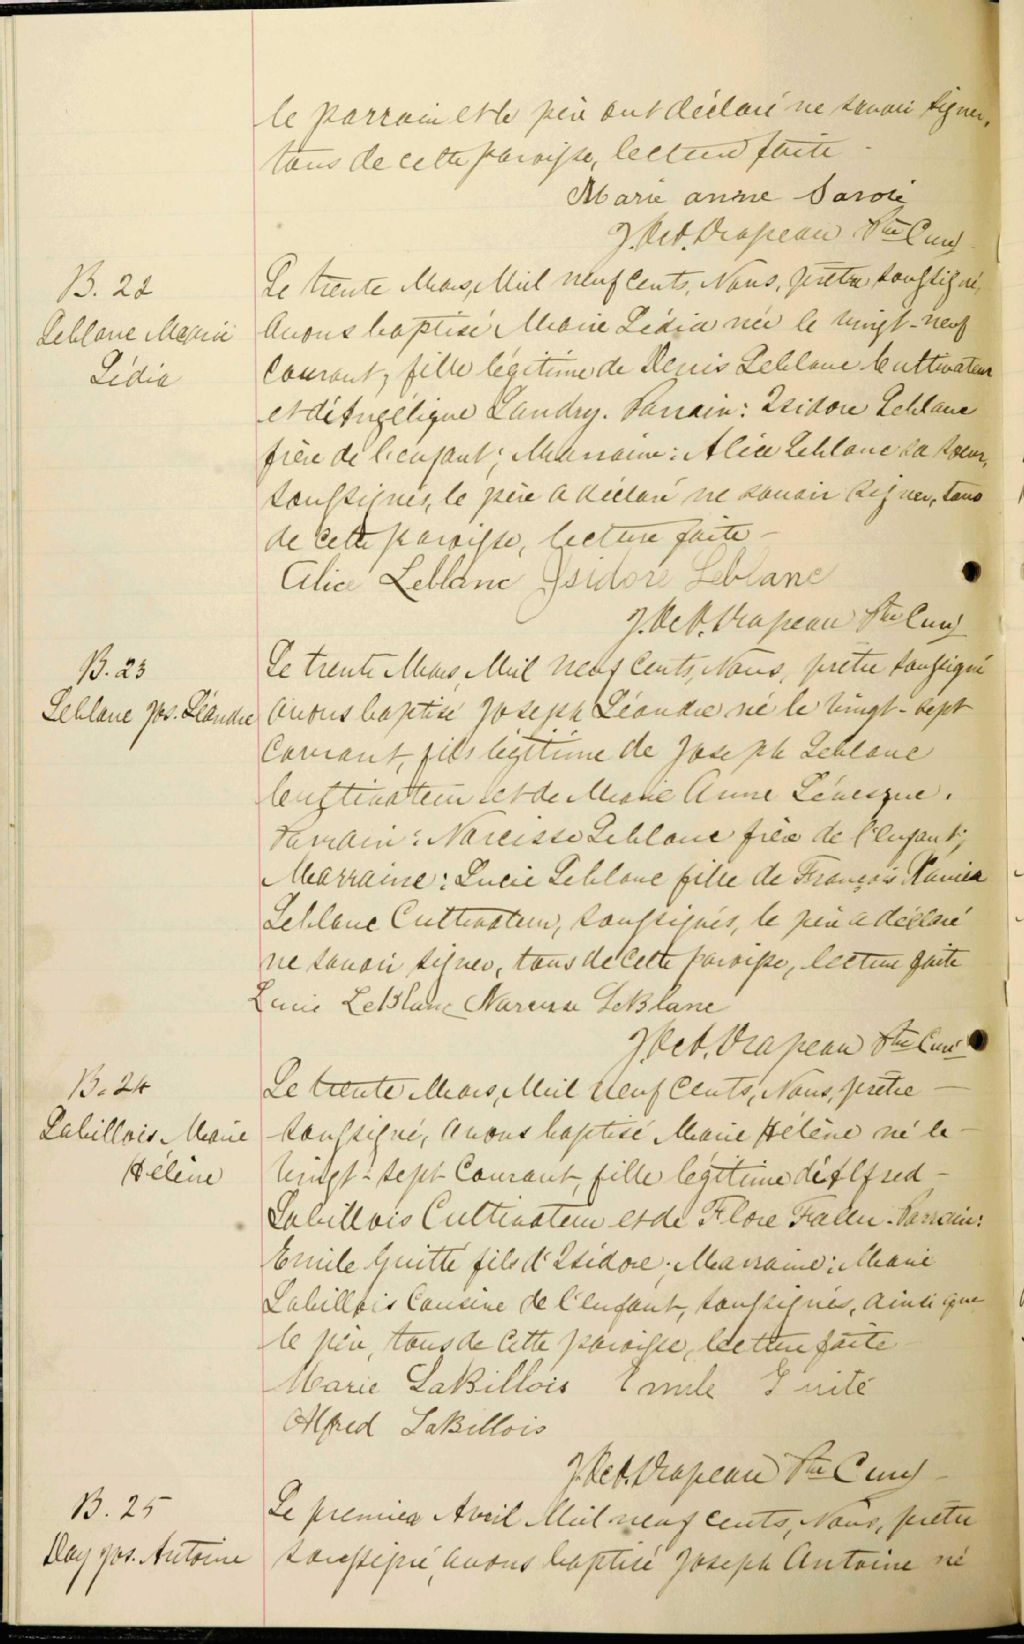 le parrain et le père ont déclaré ne savoir signer,
tous de cette paroisse, lecture faite -
Marie anne Savoie
J. Drapeau Ptre Curé
B. 22
Leblanc Marie
Lédia
Le trente Mars, Mil neuf cents, Nous, prêtre soussigné,
avons baptisé Marie Lédia née le vingt-neuf
Courant, fille légitime de Denis Leblanc Cultivateur
et d'Angélique Landry. Parrain: Isidore Leblanc
frère de l'enfant; Marraine: Alice Leblanc sa soeur,
soussignés, le père a déclaré ne savoir signer, tous
de cette paroisse, lecture faite -
Alice Leblanc Isidore Leblanc
J. Drapeau Ptre Curé
B. 23
Leblanc Jos. Léandre
Le trente Mars, Mil neuf cents, Nous, prêtre soussigné
avons baptisé Joseph Léandre né le vingt-sept
Courant, fils légitime de Joseph Leblanc
Cultivateur et de Marie Anne Lévesque.
Parrain: Narcisse Leblanc frère de l'enfant;
Marraine: Lucie Leblanc fille de François Xavier
Leblanc Cultivateur, soussignés, le père a déclaré
ne savoir signer, tous de cette paroisse, lecture faite
Lucie LeBlanc Narcisse LeBlanc
J. Drapeau Ptre Curé
B. 24
Labillois Marie
Hélène
Le trente Mars, Mil neuf Cents, Nous, prêtre -
soussigné, avons baptisé Marie Hélène né le -
vingt-sept Courant, fille légitime d'Alfred -
Labillois Cultivateur et de Flore Fallu. Parrain:
Emile Guitté fils d'Isidore; Marraine: Marie
Labillois Cousine de l'enfant, soussignés, ainsi que
le père, tous de cette paroisse, lecture faite
Marie LaBillois Emile Guité
Alfred LaBillois
J. Drapeau Ptre Curé -
B. 25
Day Jos. Antoine
Le premier Avril Mil neuf cents, Nous, prêtre
soussigné, avons baptisé Joseph Antoine né